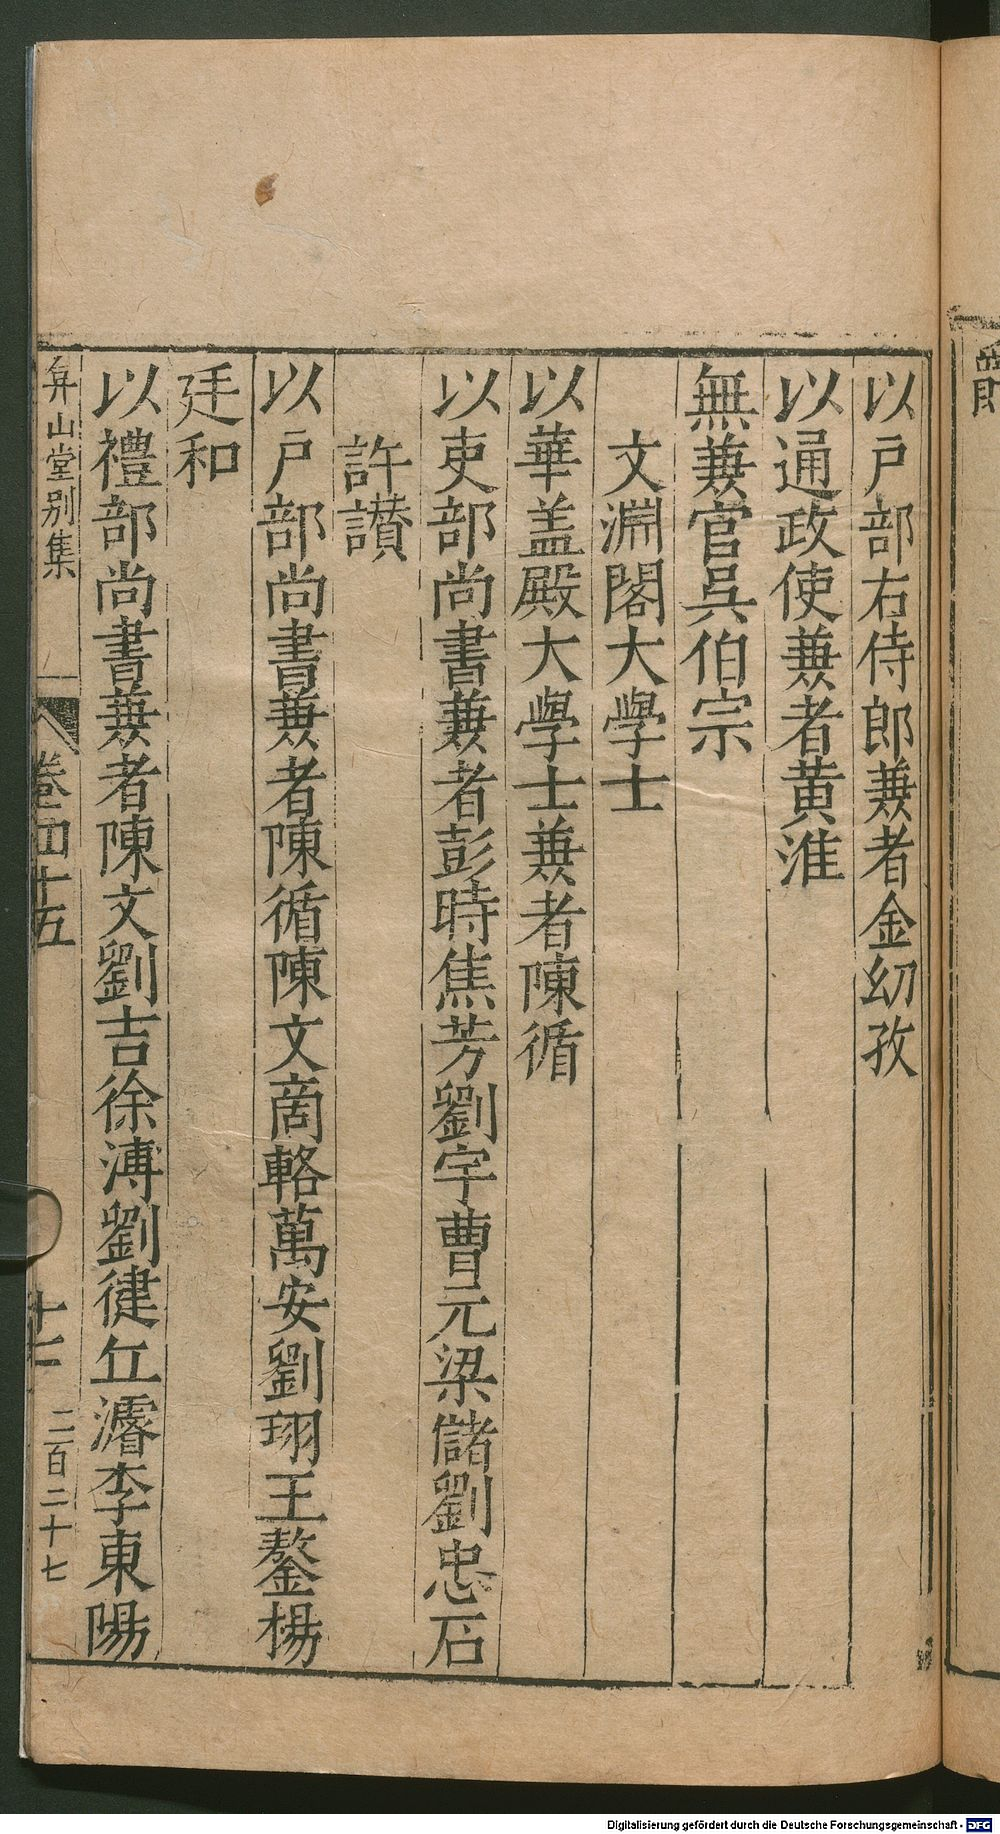 以戸部右侍郎兼者金幼孜
以通政使兼者黄淮
無兼官吳伯宗
文淵閣大學士
以華盖殿大學士兼者陳循
以吏部尚書兼者彭時焦芳劉宇曹元梁儲劉忠石
許讃
以戸部尚書兼者陳循陳文商輅萬安劉珝王鏊楊
廷和
以禮部尚書兼者陳文劉吉徐溥劉健丘濬李東陽
弇山堂别集
卷四十五
十一
二百二十七
Digitalisierung gefördert durch die Deutsche Forschungsgemeinschaft - DFG